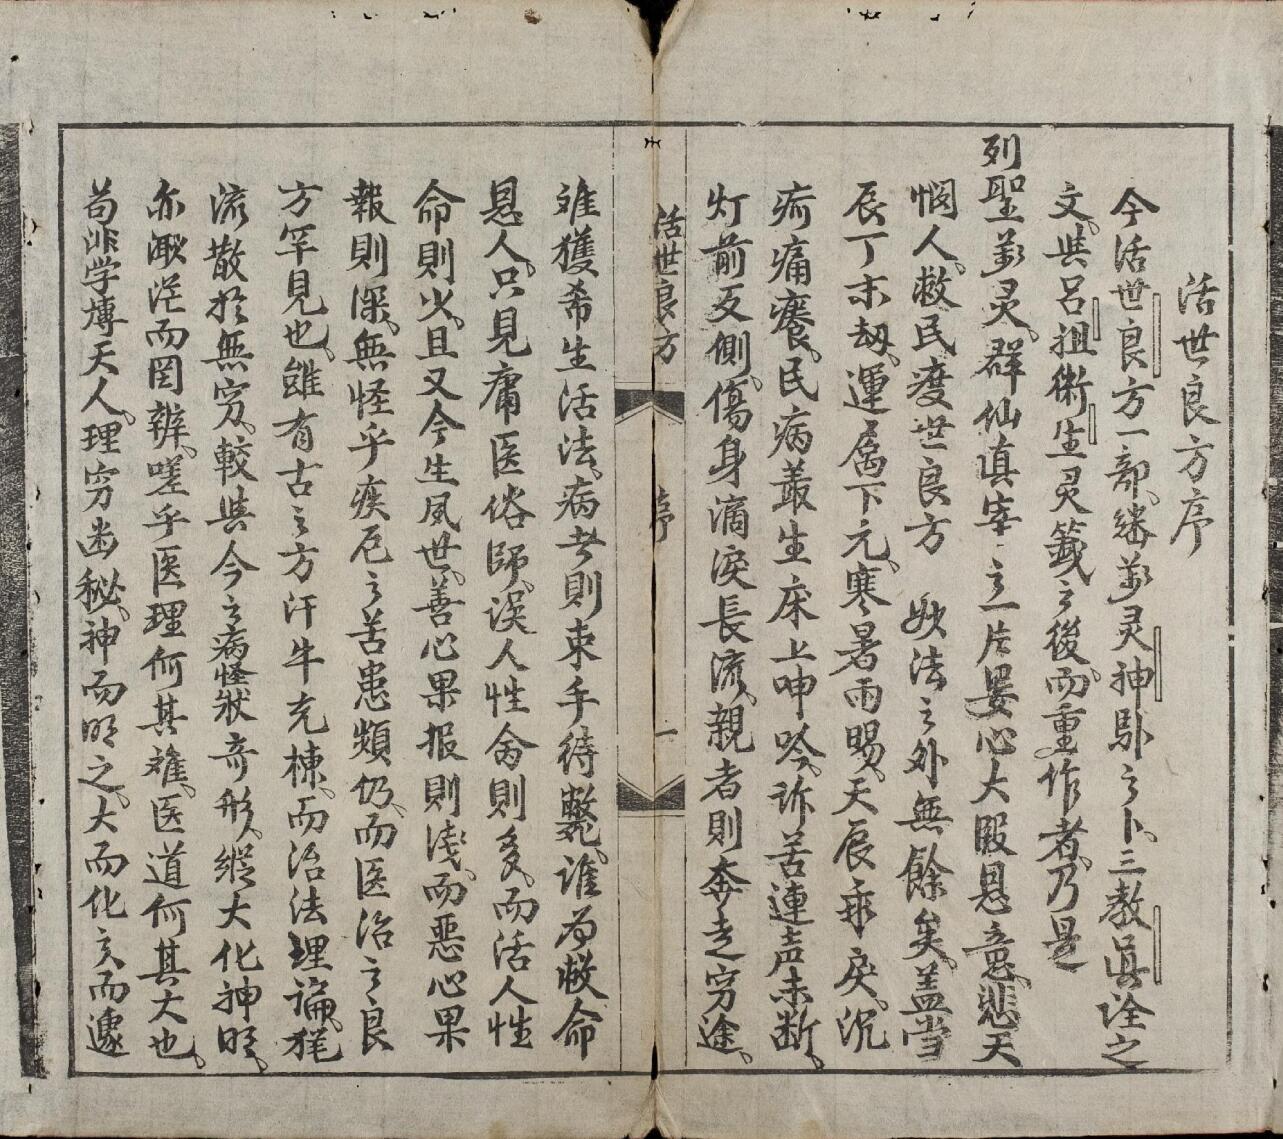 活世良方序
今活世良方一部、继萬灵神馭之卜、三教眞詮之
文、與吕祖衛生灵籤之後、而重作者、乃是
列聖萬灵、群仙眞宰之一片婆心大暇恩意、悲天
悯人、救民度世良方 妙法之外無餘矣、盖当
辰丁末刼、運属下元、寒暑雨暘、天辰乖戾、沉
疴痛癢、民病叢生、床上呻吟、诉苦連声未断、
灯前反側、傷身滴淚長流、親者則奔走穷途、
活世良方
序
一
难獲希生活法、病者則束手待斃、谁为救命
恩人、只見庸医俗師、误人性命則多、而活人性
命則少、且又今生夙世、善心果报則淺、而惡心果
報則深、無怪乎疾厄之苦患頻仍、而医治之良
方罕見也、雖有古之方汗牛充棟、而治法理論、犹
流散於無穷、較與今之病怪狀奇形、縱大化神明、
亦渺茫而罔辨、嗟乎医理何其难、医道何其大也、
苟非学博天人、理穷幽秘、神而明之、大而化之而邃